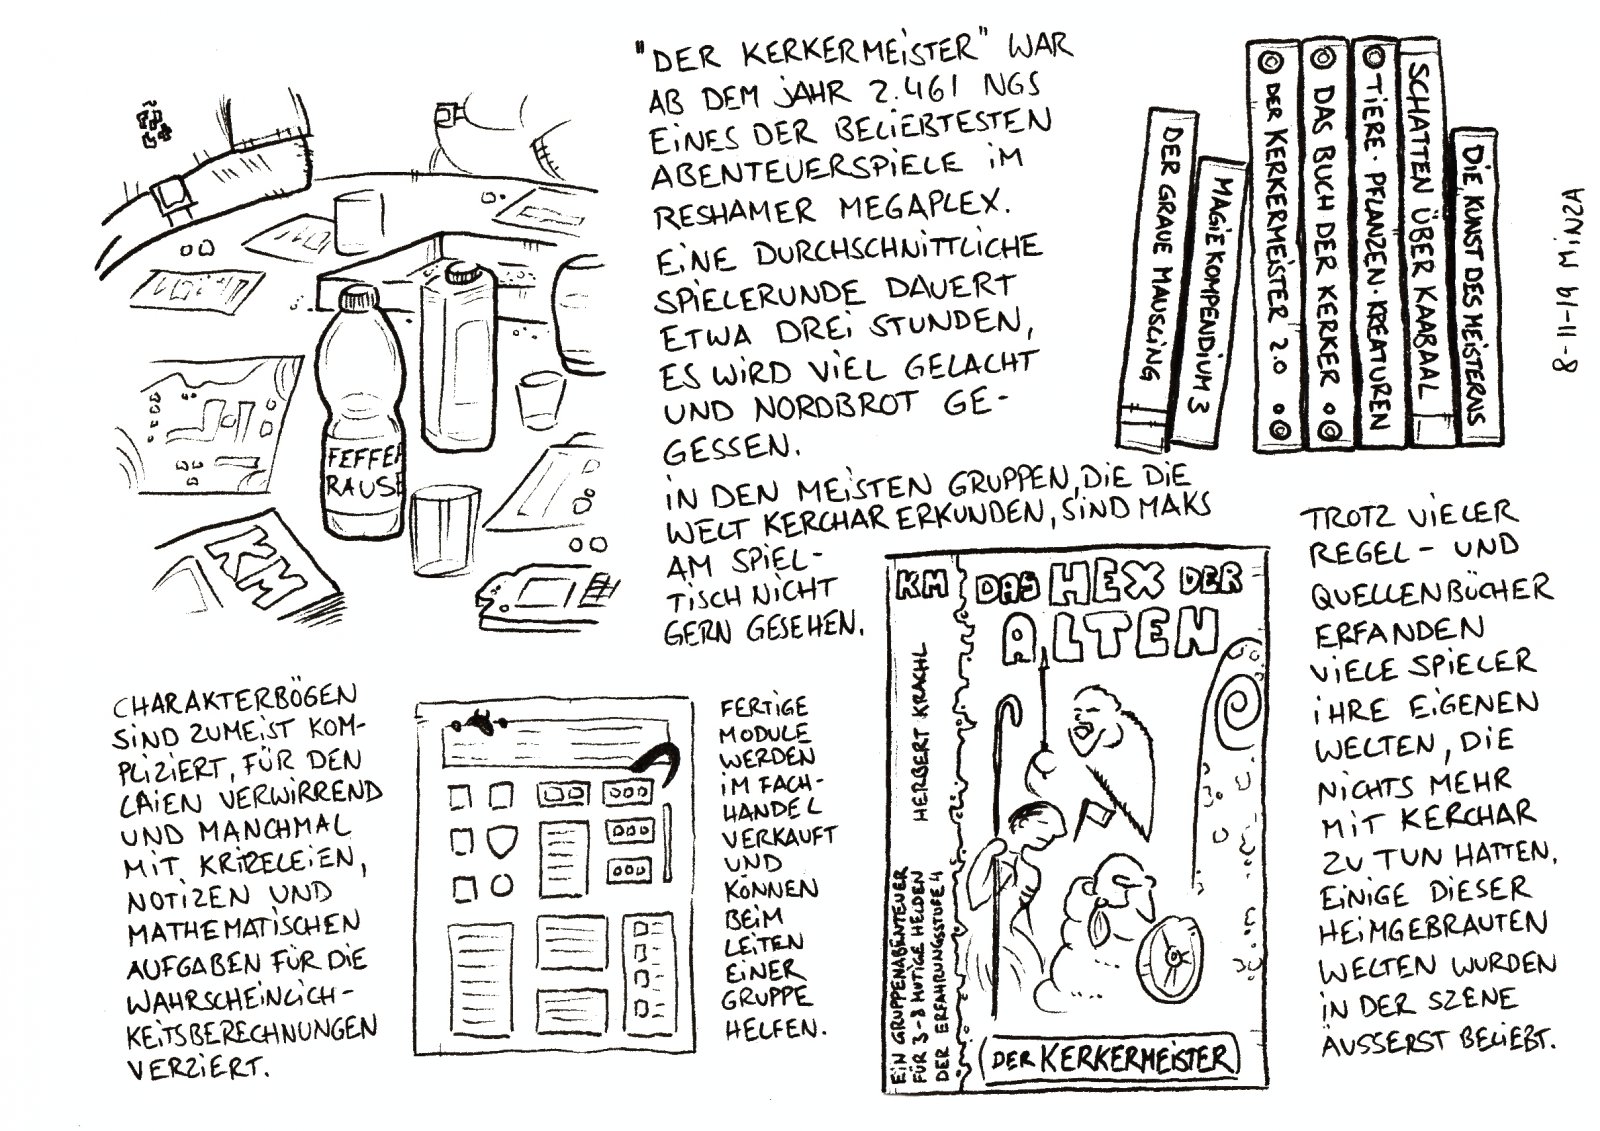 "DER KERKERMEISTER" WAR
AB DEM JAHR 2.461 NGS
EINES DER BELIEBTESTEN
ABENTEUERSPIELE IM
RESHAMER MEGAPLEX.
EINE DURCHSCHNITTLICHE
SPIELERUNDE DAUERT
ETWA DREI STUNDEN,
ES WIRD VIEL GELACHT
UND NORDBROT GE-
GESSEN.
IN DEN MEISTEN GRUPPEN, DIE DIE
WELT KERCHAR ERKUNDEN, SIND MAKS
AM SPIEL-
TISCH NICHT
GERN GESEHEN.
FEFFER
RAUSE
KM
DER GRAUE MAUSLING
MAGIE KOMPENDIUM 3
DER KERKERMEISTER 2.0
DAS BUCH DER KERKER
TIERE · PFLANZEN · KREATUREN
SCHATTEN ÜBER KAABAAL
DIE KUNST DES MEISTERNS
8-11-19 MINZA
CHARAKTERBÖGEN
SIND ZUMEIST KOM-
PLIZIERT, FÜR DEN
LAIEN VERWIRREND
UND MANCHMAL
MIT KRIZELEIEN,
NOTIZEN UND
MATHEMATISCHEN
AUFGABEN FÜR DIE
WAHRSCHEINLICH-
KEITSBERECHNUNGEN
VERZIERT.
FERTIGE
MODULE
WERDEN
IM FACH-
HANDEL
VERKAUFT
UND
KÖNNEN
BEIM
LEITEN
EINER
GRUPPE
HELFEN.
KM
DAS HEX DER
ALTEN
HERBERT KRACHL
EIN GRUPPENABENTEUER
FÜR 3-8 MUTIGE HELDEN
DER ERFAHRUNGSSTUFE 4
DER KERKERMEISTER
TROTZ VIELER
REGEL- UND
QUELLENBÜCHER
ERFANDEN
VIELE SPIELER
IHRE EIGENEN
WELTEN, DIE
NICHTS MEHR
MIT KERCHAR
ZU TUN HATTEN.
EINIGE DIESER
HEIMGEBRAUTEN
WELTEN WURDEN
IN DER SZENE
ÄUSSERST BELIEBT.